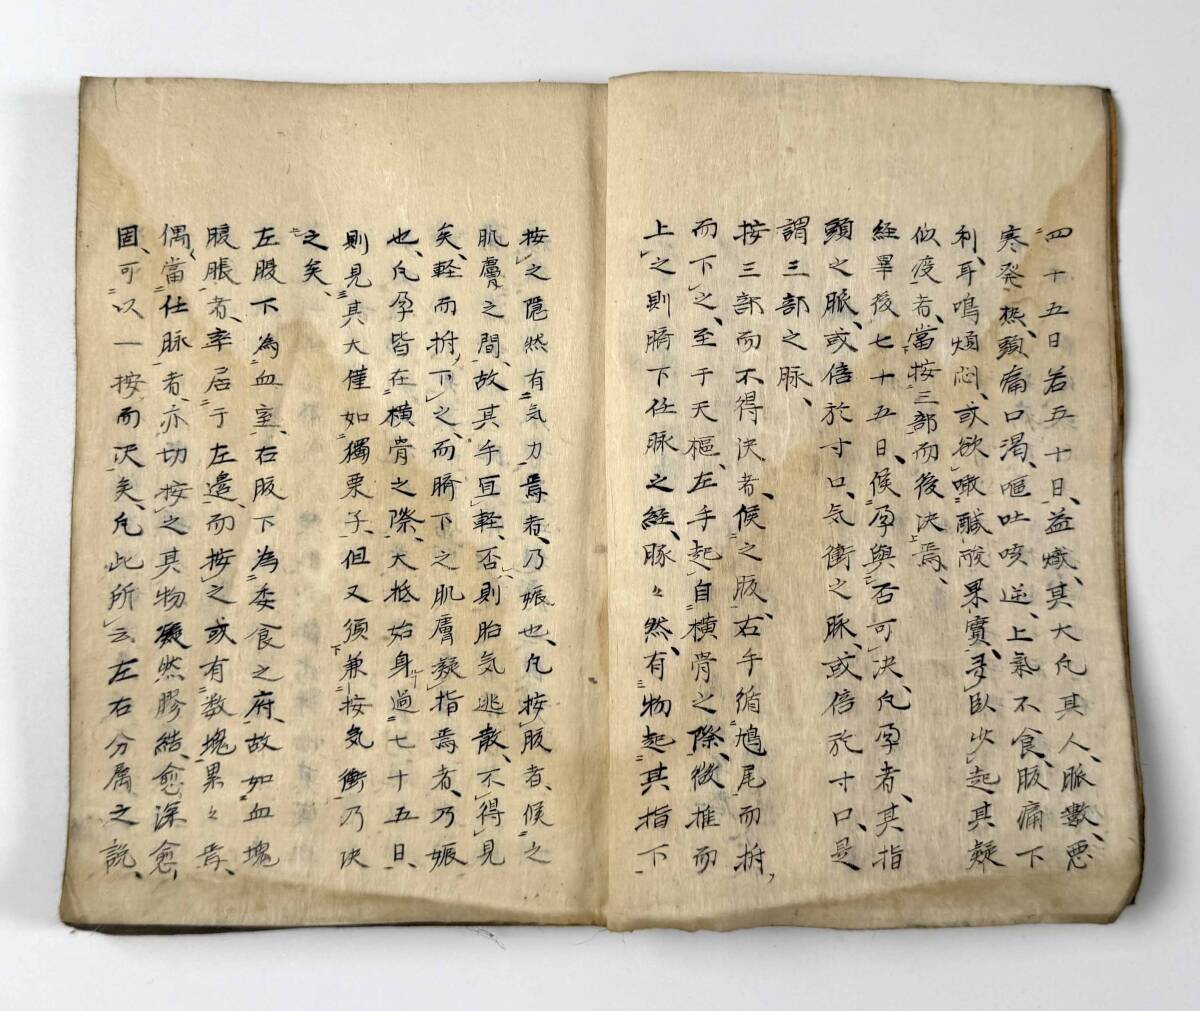 四十五日若五十日、益熾、其大凡其人、脈數、悪
寒発熱、頭痛口渇、嘔吐咳逆、上氣不食、腹痛下
利、耳鳴煩悶、或欲噉醎酸果實、多臥少起其疑
似疫者、當按三部而後決焉、
経畢後七十五日、候孕與否可決、凡孕者、其指
頭之脈、或倍於寸口、気衝之脉、或倍於寸口、是
謂三部之脉、
按三部而不得決者、候之腹、右手循鳩尾而拊、
而下之、至于天樞、左手起自横骨之際、微推而
上之則臍下任脈之経、豚々然有物起其指下
按之隠然有気力焉者、乃娠也、凡按腹者、候之
肌膚之間、故其手宜軽、否則胎気逃散、不得見
矣、軽而拊、下之、而臍下之肌膚凝指焉者、乃娠
也、凡孕皆在横骨之際、大抵始身過七十五日、
則見其大僅如獨栗子、但又須兼按気衝乃決
之矣、
左股下為血室、右腹下為委食之府、故如血塊
腹脹者、率居于左邉、而按之或有数塊、累々焉、
偶當任脉者、亦切按之其物凝然膠結、愈深愈
固、可以一按而决矣、凡此所云左右分属之説、